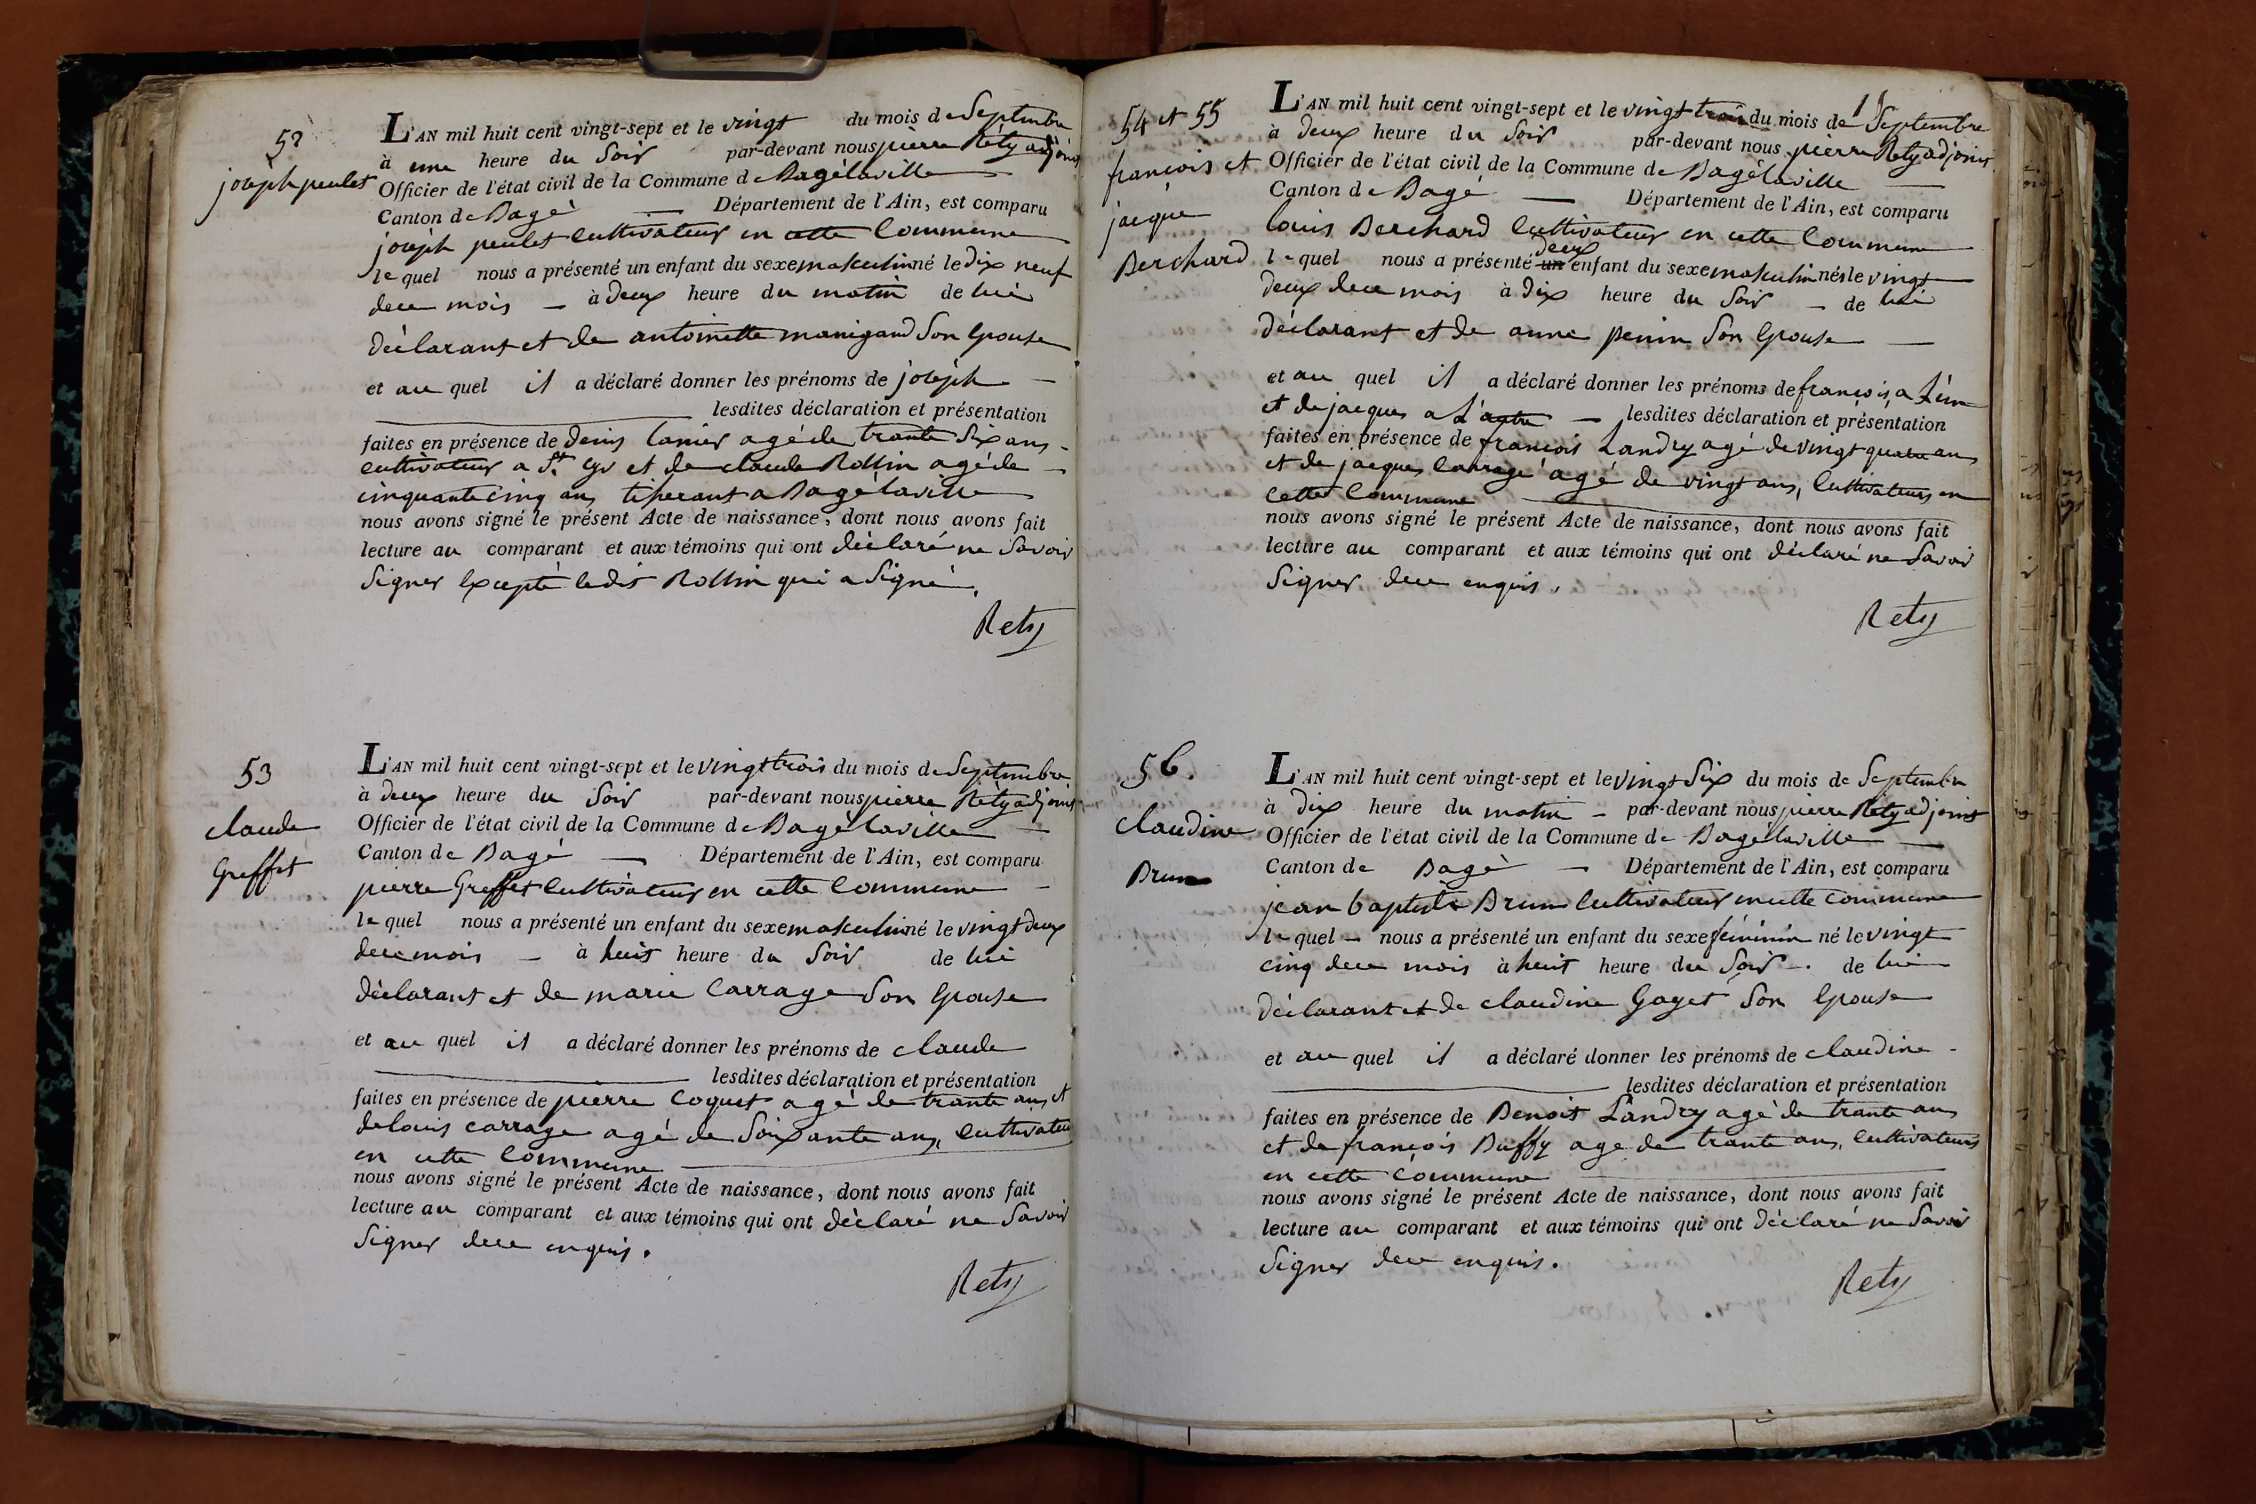 52
joseph peulet
L'AN mil huit cent vingt-sept et le vingt du mois de Septembre
à une heure du Soir par-devant nous pierre Rety adjoint
Officier de l'état civil de la Commune de Bagélaville
Canton de Bagé Département de l'Ain, est comparu
joseph peulet Cultivateur en cette Commune
le quel nous a présenté un enfant du sexe masculin né le dix neuf
dece mois à deux heure du matin de lui
déclarant et de antoinette manigand Son Epouse
et au quel il a déclaré donner les prénoms de joseph
lesdites déclaration et présentation
faites en présence de denis lanier agé de trante Six ans
cultivateur a St et de claude Rollin agé de
cinquante cinq ans tiserant a Bagélaville
nous avons signé le présent Acte de naissance, dont nous avons fait
lecture au comparant et aux témoins qui ont déclaré ne Savoir
Signer Excepté ledit Rollin qui a Signé.
Rety
53
claude
Greffet
L'AN mil huit cent vingt-sept et le vingt trois du mois de Septembre
à deux heure du Soir par-devant nous pierre Rety adjoint
Officier de l'état civil de la Commune de Bagélaville
Canton de Bagé Département de l'Ain, est comparu
pierre Greffet Cultivateur en cette Commune
le quel nous a présenté un enfant du sexe masculin né le vingt deux
dece mois à huit heure du Soir de lui
déclarant et de marie Carrage Son Epouse
et au quel il a déclaré donner les prénoms de claude
lesdites déclaration et présentation
faites en présence de pierre Coquet agé de trante ans et
de louis carrage agé de Soixante ans, Cultivateu
en cette Commune
nous avons signé le présent Acte de naissance, dont nous avons fait
lecture au comparant et aux témoins qui ont déclaré ne Savoir
Signer dece enquis.
Rety
54 et 55
françois et
jacque
Berchard
L'AN mil huit cent vingt-sept et le vingt trois du mois de Septembre
à deux heure du Soir par-devant nous pierre Rety adjoint
Officier de l'état civil de la Commune de Bagélaville
Canton de Bagé Département de l'Ain, est comparu
louis Berchard Cultivateur en cette Commune
le quel nous a présenté un deux enfant du sexe masculin nés le vingt
deux dece mois à dix heure du Soir de lui
déclarant et de anne penin Son Epouse
et au quel il a déclaré donner les prénoms de françois a L'un
et de jacques a L'autre lesdites déclaration et présentation
faites en présence de françois Landry agé de vingt quatre ans
et de jacques Carragé agé de vingt ans, Cultivateurs en
cette Commune
nous avons signé le présent Acte de naissance, dont nous avons fait
lecture au comparant et aux témoins qui ont déclaré ne Savoir
Signer dece enquis.
Rety
56.
Claudine
Brun
L'AN mil huit cent vingt-sept et le vingt Six du mois de Septembre
à dix heure du matin par-devant nous pierre Rety adjoint
Officier de l'état civil de la Commune de Bagélaville
Canton de Bagé Département de l'Ain, est comparu
jean baptiste Brun Cultivateur en cette commune
le quel nous a présenté un enfant du sexe féminin né le vingt
cinq dece mois à huit heure du Soir de lui
déclarant et de claudine Gayet Son Epouse
et au quel il a déclaré donner les prénoms de claudine
lesdites déclaration et présentation
faites en présence de Benoit Landry agé de trante ans
et de françois Buffy age de trante ans, Cultivateurs
en cette Commune
nous avons signé le présent Acte de naissance, dont nous avons fait
lecture au comparant et aux témoins qui ont déclaré ne Savoir
Signer dece enquis.
Rety